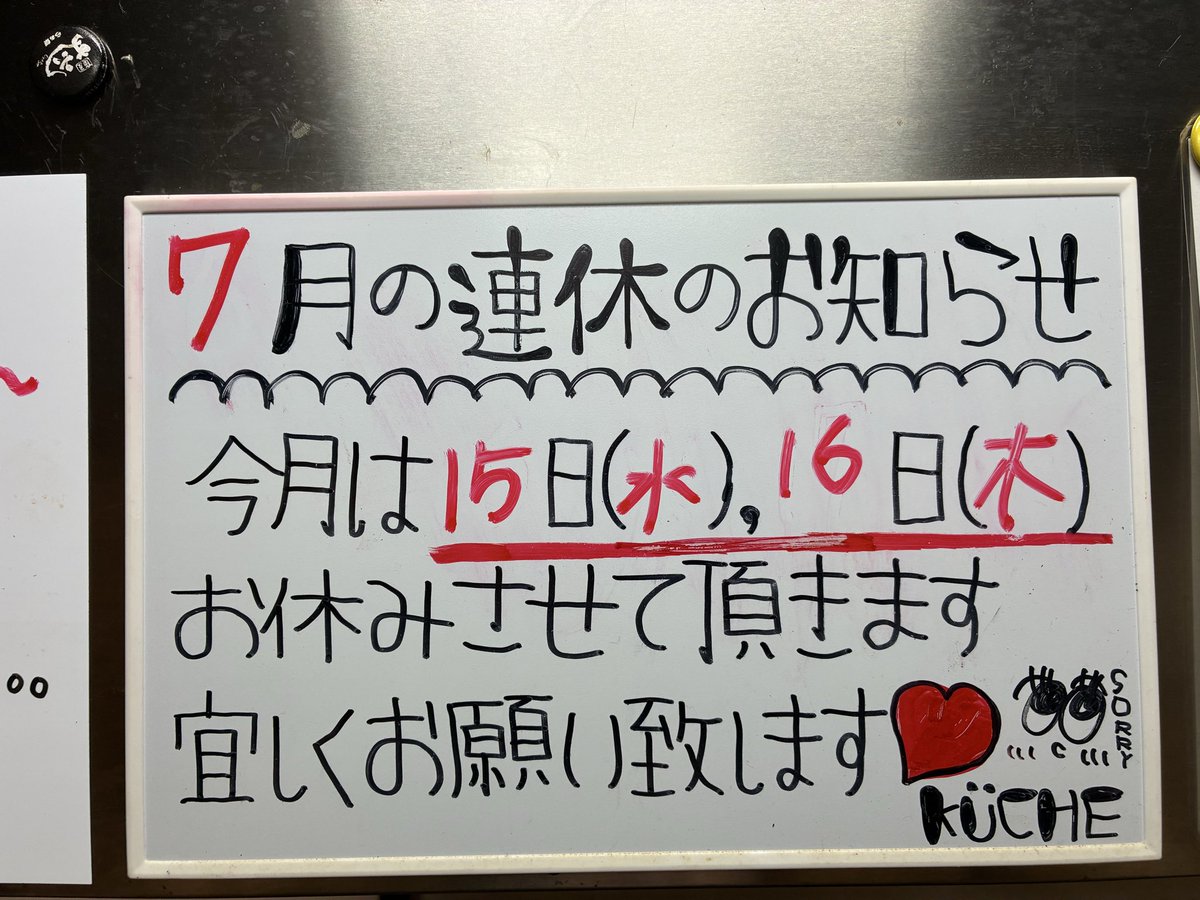 7月の連休のお知らせ
今月は15日(水),16日(木)
お休みさせて頂きます
宜しくお願い致します
SORRY
KÜCHE
00